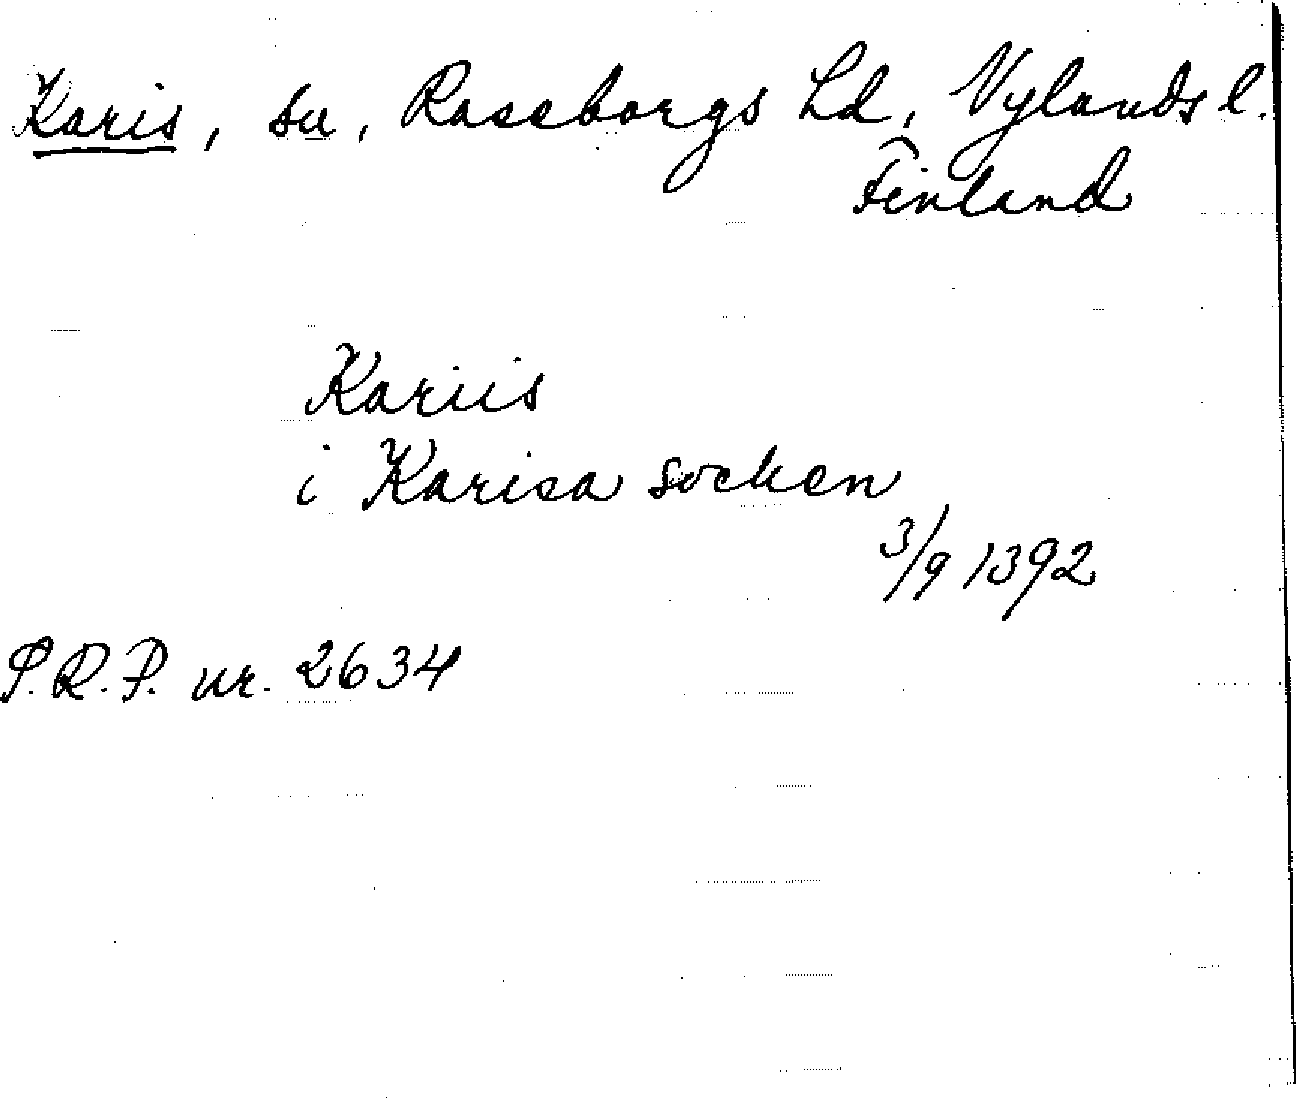 Karis, sn, Raseborgs hd, Nylands l.
Finland
Kariis
i Karisa socken
3/9 1392
S.R.P. nr. 2634